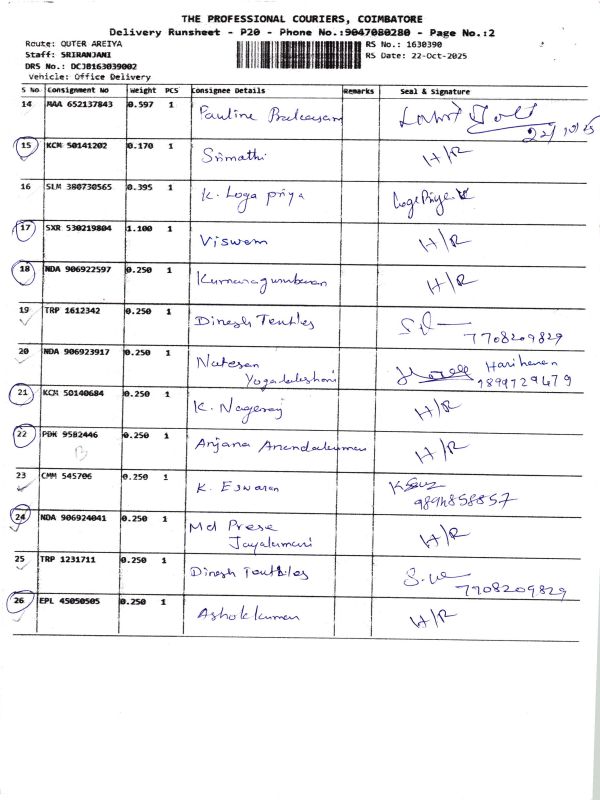 THE PROFESSIONAL COURIERS, COIMBATORE
Delivery Runsheet - P20 - Phone No.:9047080280 - Page No.:2
Route: OUTER AREIYA
RS No.: 1630390
Staff: SRIRANJANI
RS Date: 22-Oct-2025
DRS No.: DCJ0163039002
Vehicle: Office Delivery
S No Consignment No Weight PCS Consignee Details Remarks Seal & Signature
14 MAA 652137843 0.597 1 Pauline Prakasam
22/10/25
15 KCM 50141202 0.170 1 Srimathi H/R
16 SLM 380730565 0.395 1 K. Loga priya LogaPriya K
17 SXR 530219804 1.100 1 Viswem H/R
18 NDA 906922597 0.250 1 Kumaragumbaran H/R
19 TRP 1612342 0.250 1 Dinesh Textiles
7708209829
20 NDA 906923917 0.250 1 Natesan Hariharan
Yogadakshani 9899729479
21 KCM 50140684 0.250 1 K. Nagaraj H/R
22 PDK 9582446 0.250 1 Anjana Anandakumar H/R
B
23 CMM 545706 0.250 1 K. Eswaran
9894858857
24 NDA 906924041 0.250 1 Md Prese H/R
Jayakumari
25 TRP 1231711 0.250 1 Dinesh Textiles
7708209829
26 EPL 45050505 0.250 1 Ashokkumar H/R